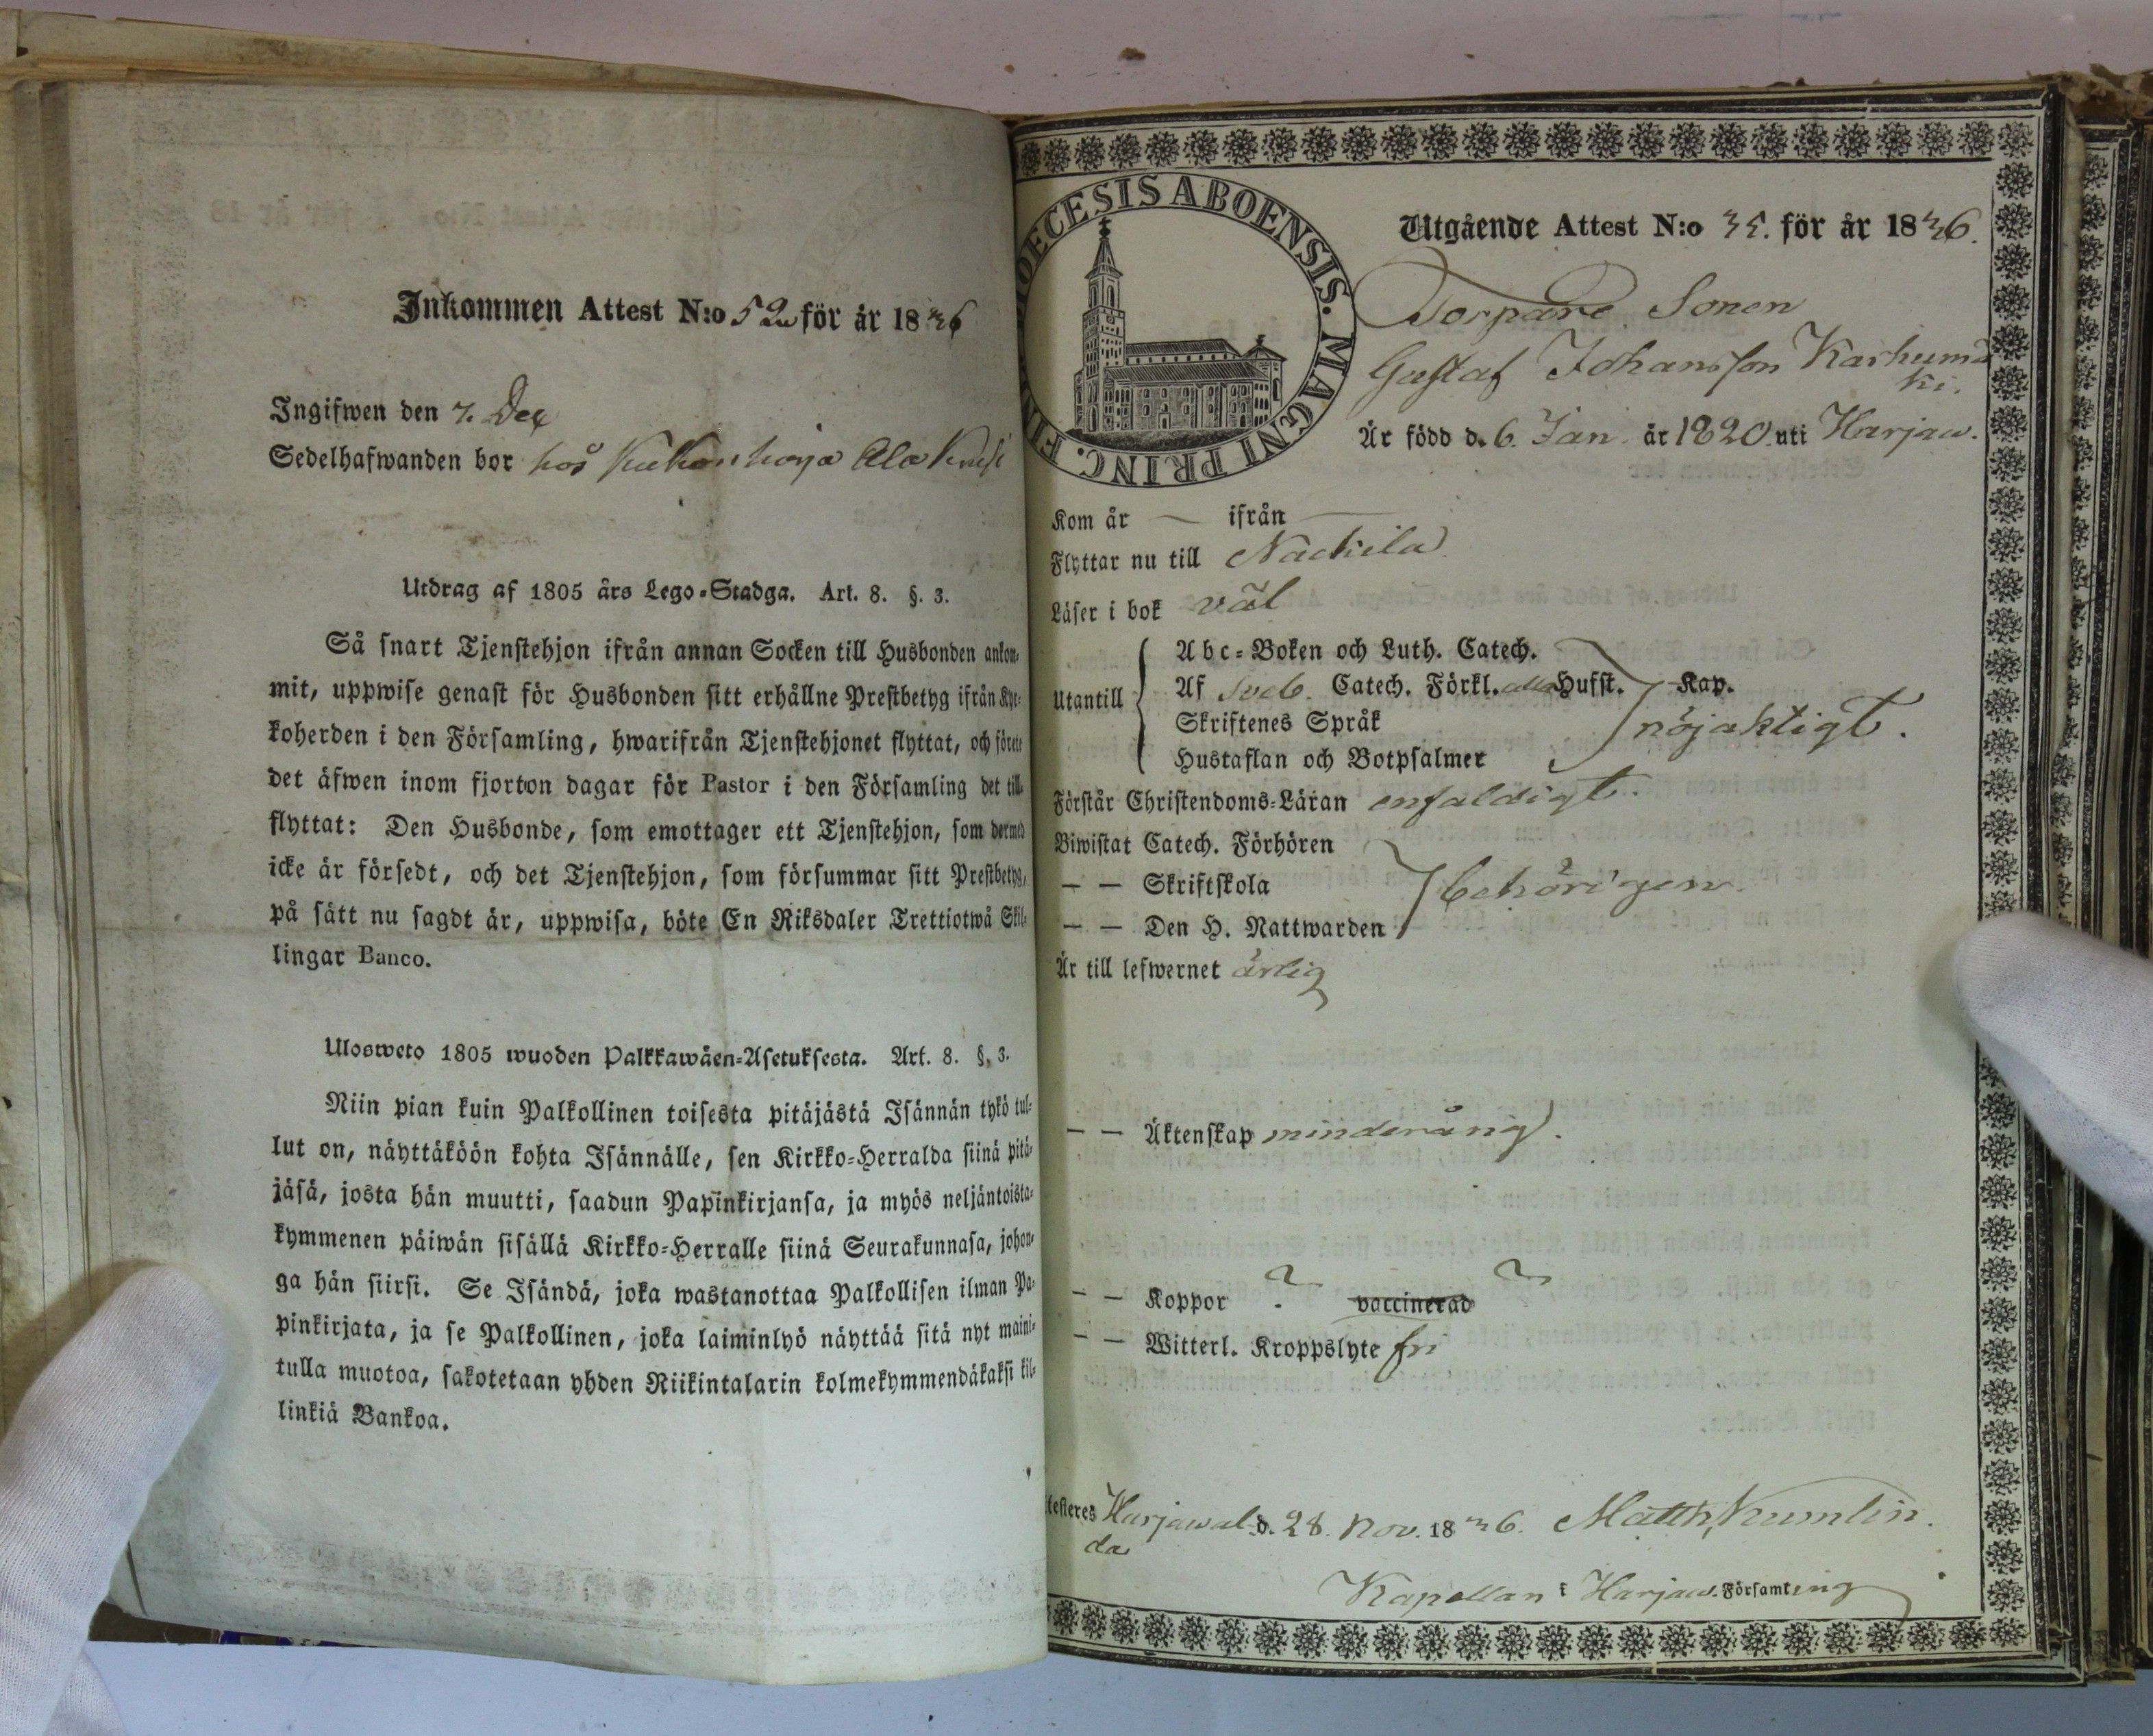 Inkommen Attest N:o 52 för år 1836
Ingifwen den 7. Dec
Sedelhafwanden bor hos
Utdrag af 1805 års Lego-Stadga. Art. 8. §. 3.
Så snart Tjenstehjon ifrån annan Socken till Husbonden ankom-
mit, uppwise genast för Husbonden sitt erhållne Prestbetyg ifrån Kyr-
koherden i den Församling, hwarifrån Tjenstehjonet flyttat, och förete
det äfwen inom fjorton dagar för Pastor i den Församling det till-
flyttat: Den Husbonde, som emottager ett Tjenstehjon, som dermed
icke är försedt, och det Tjenstehjon, som försummar sitt Prestbetyg,
på sätt nu sagdt är, uppwisa, böte En Riksdaler Trettiotwå Skil-
lingar Banco.
Ulosweto 1805 wuoden Palkkawäen-Asetuksesta. Art. 8. §. 3.
Niin pian kuin Palkollinen toisesta pitäjästä Isännän tykö tul-
lut on, näyttäköön kohta Isännälle, sen Kirkko-Herralda siinä pitä-
jäsä, josta hän muutti, saadun Papinkirjansa, ja myös neljäntoista-
kymmenen päiwän sisällä Kirkko-Herralle siinä Seurakunnasa, johon-
ga hän siirsi. Se Isändä, joka wastanottaa Palkollisen ilman Pa-
pinkirjata, ja se Palkollinen, joka laiminlyö näyttää sitä nyt maini-
tulla muotoa, sakotetaan yhden Riikintalarin kolmekymmendäkaksi kil-
linkiä Bankoa.
DIOECESIS ABOENSIS. MAGNI PRINC. FIN
Utgående Attest N:o 35. för år 1836.
Torpare Sonen
Gustaf Johansson Karhumä
ki.
Är född d. 6. Jan. år 1820. uti Harjaw.
Kom år — ifrån —
Flyttar nu till Nackila
Läser i bok väl
Utantill
Abc-Boken och Luth. Catech.
Af Sveb. Catech. Förkl. alla Hufst. Kap.
Skriftenes Språk
Hustaflan och Botpsalmer
nöjaktigt.
Förstår Christendoms-Läran enfaldigt.
Biwistat Catech. Förhören
— — Skriftskola
— — Den H. Nattwarden
behörigen.
Är till lefwernet ärlig
— — Äktenskap minderårig.
— — Koppor ? vaccinerad ?
— — Witterl. Kroppslyte fri
testeres Harjawal- d. 28. Nov. 1836. Matth. Kumlin.
da
Kapellan i Harjaw. Församling